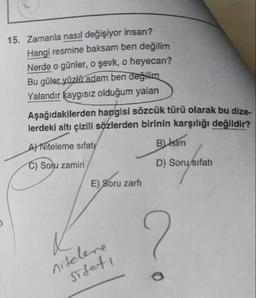 15. Zamanla nasıl değişiyor insan?
Hangi resmine baksam ben değilim
Nerde o günler, o şevk, o heyecan?
Bu güler yüzlü adam ben değilim
Yalandır kaygısız olduğum yalan
Aşağıdakilerden hangisi sözcük türü olarak bu dize-
lerdeki altı çizili sözlerden birinin karşılığı değildir?
A) Niteleme sıfatı B) İsim
C) Soru zamiri D) Soru sıfatı
E) Soru zarfı
niteleme
sıfatı
?